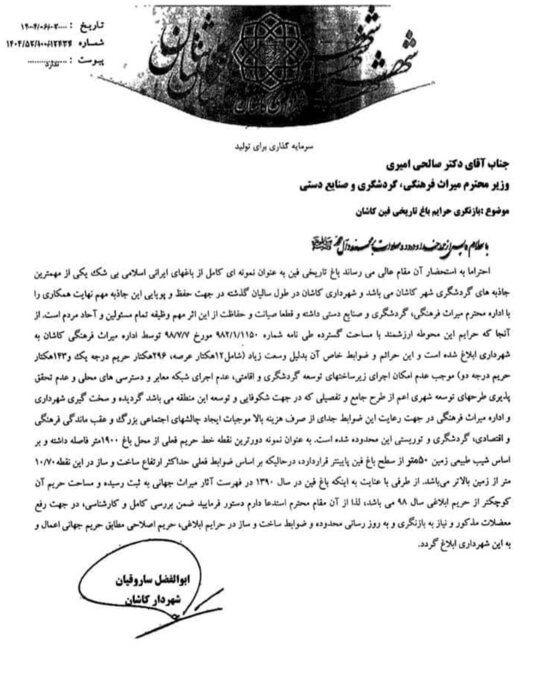 تاریخ : ۱۴۰۴/۰۶/۰۲
شماره ۱۴۰۴/۵۲/۱۰۰/۱۲۴۳۴
پیوست : ندارد
سرمایه گذاری برای تولید
جناب آقای دکتر صالحی امیری
وزیر محترم میراث فرهنگی، گردشگری و صنایع دستی
موضوع: بازنگری حرایم باغ تاریخی فین کاشان
احتراما به استحضار آن مقام عالی می رساند باغ تاریخی فین به عنوان نمونه ای کامل از باغهای ایرانی اسلامی بی شک یکی از مهمترین
جاذبه های گردشگری شهر کاشان می باشد و شهرداری کاشان در طول سالیان گذشته در جهت حفظ و پویایی این جاذبه مهم نهایت همکاری را
با اداره محترم میراث فرهنگی، گردشگری و صنایع دستی داشته و قطعا صیانت و حفاظت از این اثر مهم وظیفه تمام مسئولین و آحاد مردم است. از
آنجا که حرایم این محوطه ارزشمند با مساحت گسترده طی نامه شماره ۹۸۲/۱/۱۱۵۰ مورخ ۹۸/۷/۷ توسط اداره میراث فرهنگی کاشان به
شهرداری ابلاغ شده است و این حرائم و ضوابط خاص آن بدلیل وسعت زیاد (شامل۱۲هکتار عرصه، ۲۹۶هکتار حریم درجه یک و۱۴۳هکتار
حریم درجه دو) موجب عدم امکان اجرای زیرساختهای توسعه گردشگری و اقامتی، عدم اجرای شبکه معابر و دسترسی های محلی و عدم تحقق
پذیری طرحهای توسعه شهری اعم از طرح جامع و تفصیلی که در جهت شکوفایی و توسعه این منطقه می باشد گردیده و سخت گیری شهرداری
و اداره میراث فرهنگی در جهت رعایت این ضوابط جدای از صرف هزینه بالا موجبات ایجاد چالشهای اجتماعی بزرگ و عقب ماندگی فرهنگی
و اقتصادی، گردشگری و توریستی این محدوده شده است. به عنوان نمونه دورترین نقطه خط حریم فعلی از محل باغ ۱۹۰۰متر فاصله داشته و بر
اساس شیب طبیعی زمین ۵۰متر از سطح باغ فین پایینتر قراردارد، درحالیکه بر اساس ضوابط فعلی حداکثر ارتفاع ساخت و ساز در این نقطه ۱۰/۷۰
متر از زمین بالاتر می‌باشد. از طرفی با عنایت به اینکه باغ فین در سال ۱۳۹۰ در فهرست آثار میراث جهانی به ثبت رسیده و مساحت حریم آن
کوچکتر از حریم ابلاغی سال ۹۸ می باشد، لذا از آن مقام محترم استدعا دارم دستور فرمایید ضمن بررسی کامل و کارشناسی، در جهت رفع
معضلات مذکور و نیاز به بازنگری و به روز رسانی محدوده و ضوابط ساخت و ساز در حرایم ابلاغی، حریم اصلاحی مطابق حریم جهانی اعمال و
به این شهرداری ابلاغ گردد.
ابوالفضل ساروقیان
شهردار کاشان